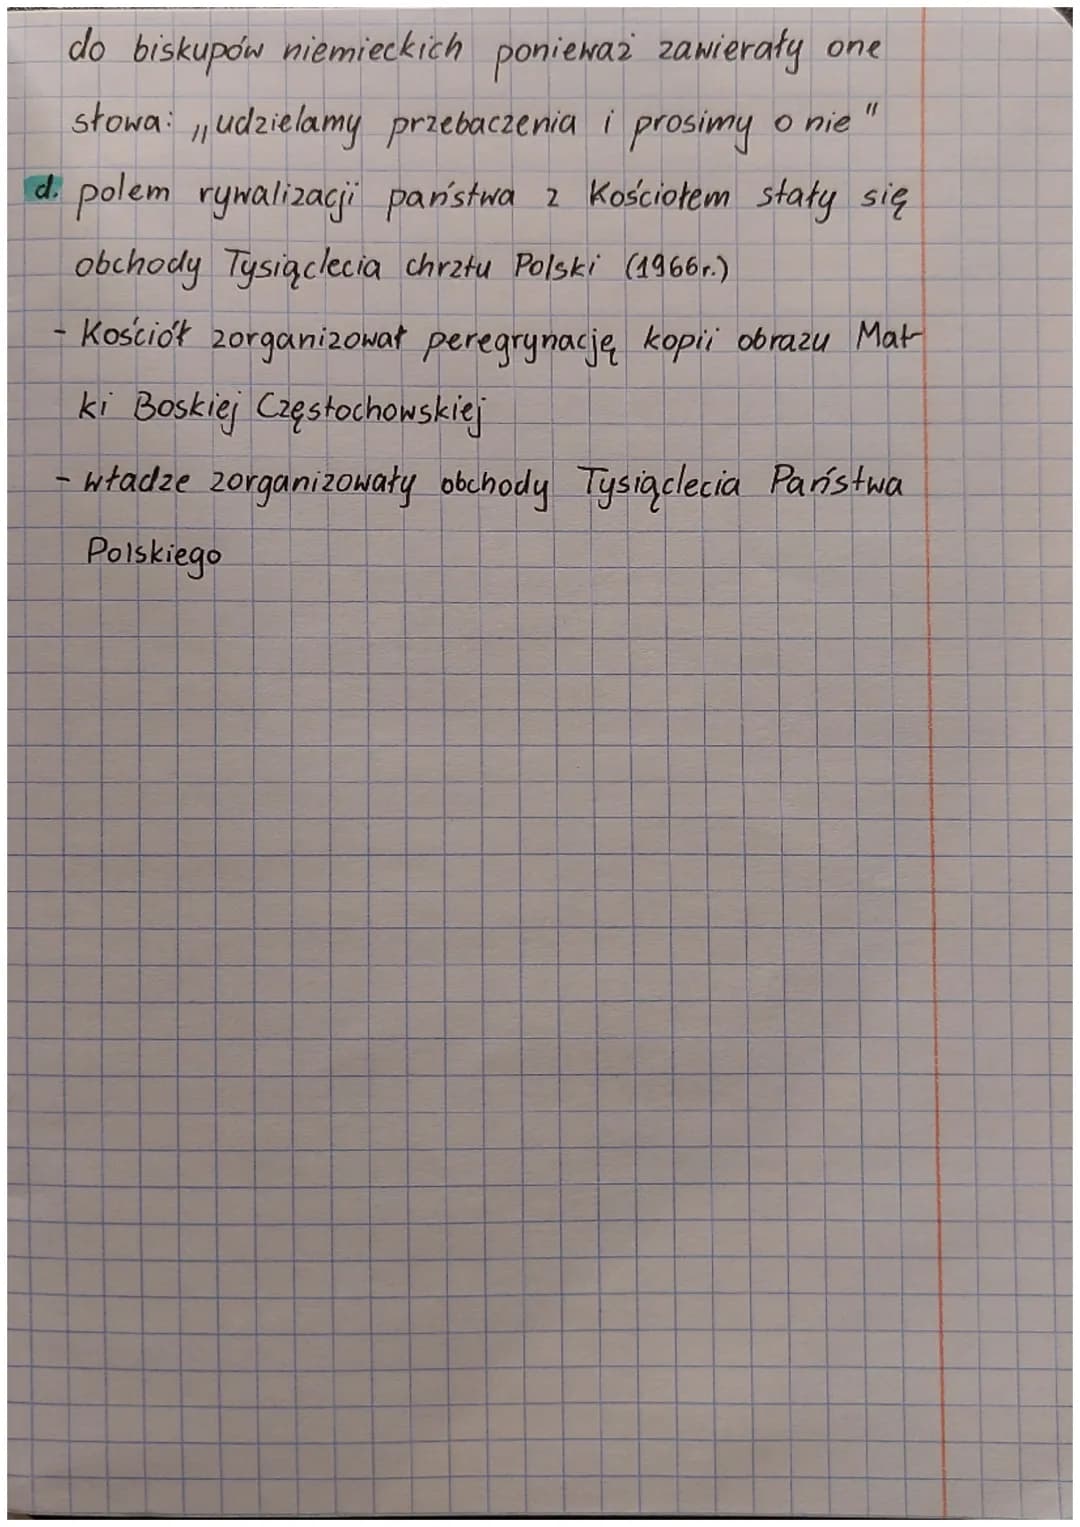 do biskupów niemieckich ponieważ zawierały one
słowa: „udzielamy przebaczenia i prosimy o nie"
d. polem rywalizacji państwa z Kościołem stały się
obchody Tysiąclecia chrztu Polski (1966r.)
- Kościół zorganizował peregrynację kopii obrazu Mat-
ki Boskiej Częstochowskiej
- władze zorganizowały obchody Tysiąclecia Państwa
Polskiego